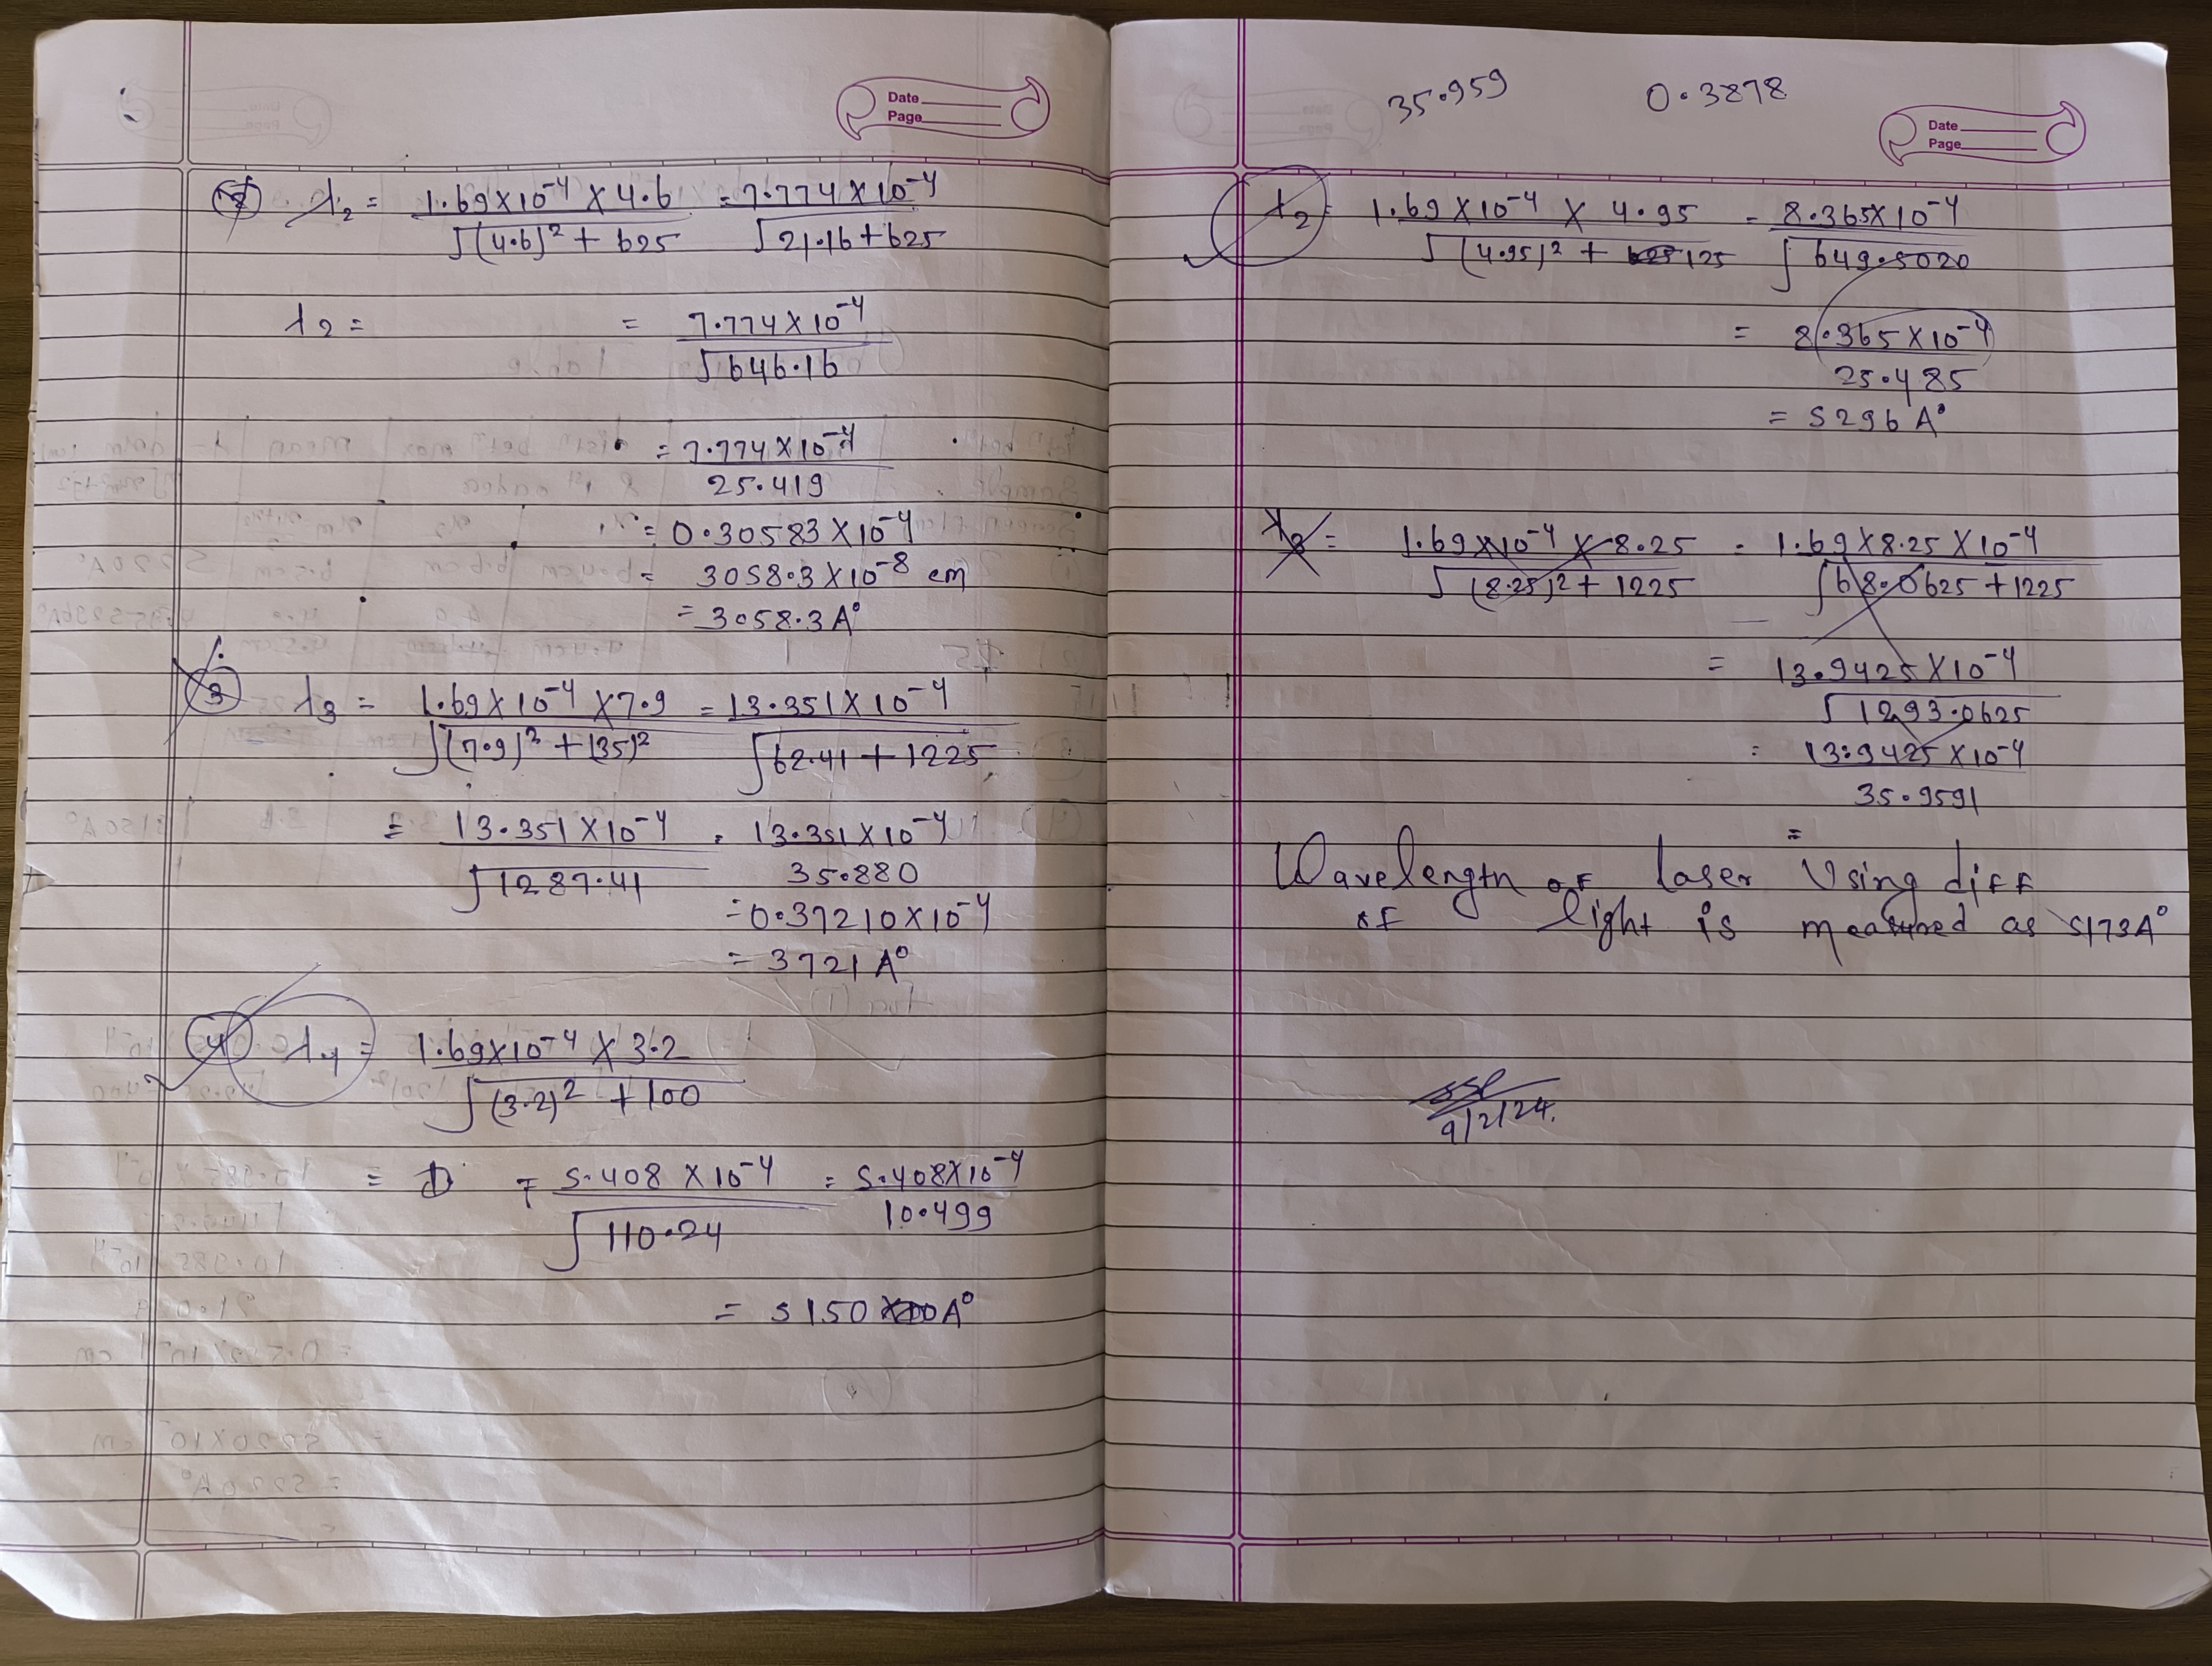 Date
Page
② λ₂ = 1.69×10⁻⁴ × 4.6 / √(4.6)² + 625 = 7.774×10⁻⁴ / √21.16+625
λ₂ = = 7.774×10⁻⁴ / √646.16
= 7.774×10⁻⁴ / 25.419
= 0.30583×10⁻⁴
= 3058.3×10⁻⁸ cm
= 3058.3A°
③ λ₃ = 1.69×10⁻⁴ ×7.9 / √(7.9)² + (35)² = 13.351×10⁻⁴ / √62.41+1225
= 13.351×10⁻⁴ / √1287.41 = 13.351×10⁻⁴ / 35.880
= 0.37210×10⁻⁴
= 3721A°
④ λ₄ = 1.69×10⁻⁴ × 3.2 / √(3.2)² + 100
= = 5.408 ×10⁻⁴ / √110.24 = 5.408×10⁻⁴ / 10.499
= 5150 A°
35.959 0.3878
Date
Page
λ₂ = 1.69×10⁻⁴ × 4.95 / √(4.95)² + 125 = 8.365×10⁻⁴ / √649.5020
= 8.365×10⁻⁴ / 25.485
= 5296 A°
λ₃ = 1.69×10⁻⁴ × 8.25 / √(8.25)² + 1225 = 1.69×8.25×10⁻⁴ / √68.0625+1225
= 13.9425×10⁻⁴ / √1293.0625
= 13.9425×10⁻⁴ / 35.9591
=
Wavelength of laser Using diff
of light is measured as 5173A°
9/2/24.